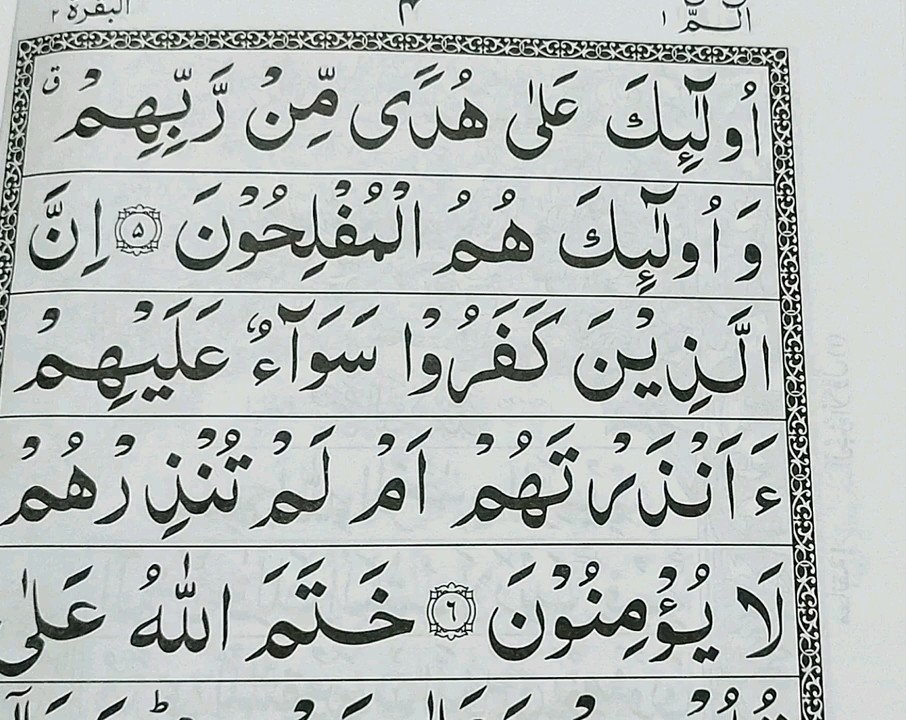 الٓـمّٓ ١ ٤ البقرة ٢
اُولٰٓئِكَ عَلٰى هُدًى مِّنْ رَّبِّهِمْ ۗق
وَ اُولٰٓئِكَ هُمُ الْمُفْلِحُوْنَ ۝۵ اِنَّ
الَّذِيْنَ كَفَرُوْا سَوَآءٌ عَلَيْهِمْ
ءَاَنْذَرْتَهُمْ اَمْ لَمْ تُنْذِرْهُمْ
لَا يُؤْمِنُوْنَ ۝۶ خَتَمَ اللّٰهُ عَلٰى